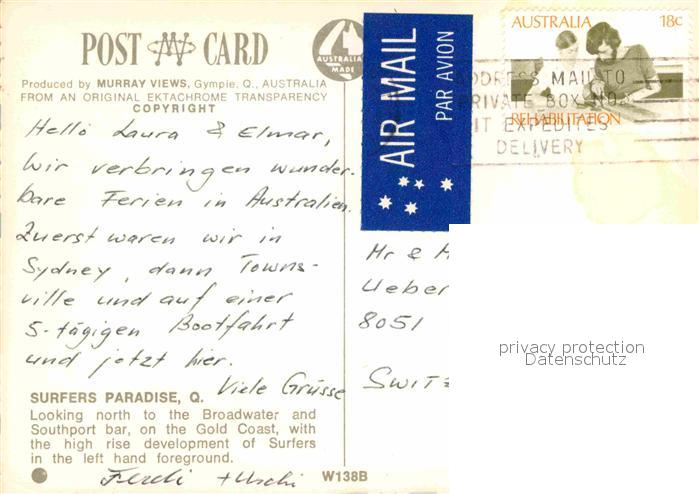 POST CARD
AUSTRALIAN
MADE
Produced by MURRAY VIEWS, Gympie, Q., AUSTRALIA
FROM AN ORIGINAL EKTACHROME TRANSPARENCY
COPYRIGHT
AIR MAIL
PAR AVION
AUSTRALIA 18c
REHABILITATION
ADDRESS MAIL TO
PRIVATE BOX NO.
IT EXPEDITES
DELIVERY
Hello Laura & Elmar,
Wir verbringen wunder-
bare Ferien in Australien.
Zuerst waren wir in
Sydney, dann Towns-
ville und auf einer
5-tägigen Bootfahrt
und jetzt hier.
Viele Grüsse
Ferdi + Uschi
Mr & M
Ueber
8051
SWIT
privacy protection
Datenschutz
SURFERS PARADISE, Q.
Looking north to the Broadwater and
Southport bar, on the Gold Coast, with
the high rise development of Surfers
in the left hand foreground.
W138B